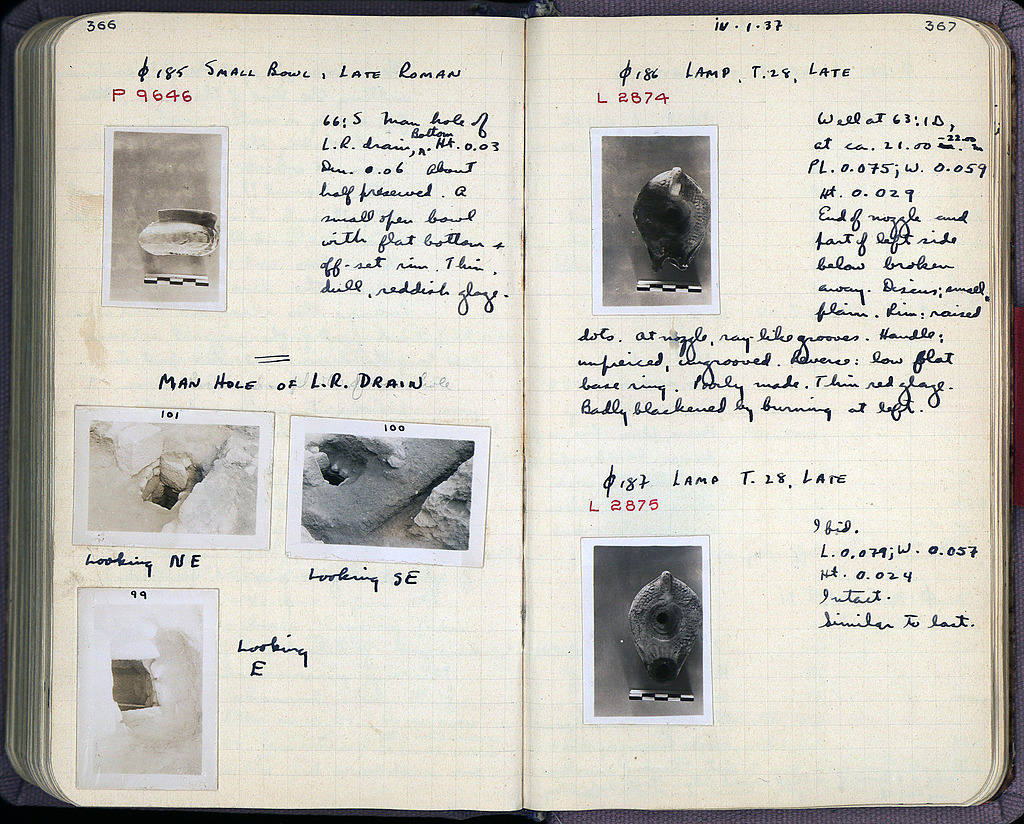 366
ϕ185 SMALL BOWL, LATE ROMAN
P 9646
66:S Man hole of
L.R. drain, Bottom. Ht. 0.03
Dm. 0.06 About
half preserved. A
small open bowl
with flat bottom +
off-set rim. Thin,
dull, reddish glaze.
MAN HOLE OF L.R. DRAIN
101
Looking NE
100
Looking SE
99
Looking
E
IV.1.37
367
ϕ186 LAMP, T.28, LATE
L 2874
Well at 63:1Δ,
at ca. 21.00 -22.00 m
PL. 0.075; W. 0.059
Ht. 0.029
End of nozzle and
part of left side
below broken
away. Discus: small,
plain. Rim: raised
dots. At nozzle, ray-like grooves. Handle:
unpierced, ungrooved. Reverse: low flat
base ring. Poorly made. Thin red glaze.
Badly blackened by burning at left.
ϕ187 LAMP T.28, LATE
L 2875
Ibid.
L. 0.079; W. 0.057
Ht. 0.024
Intact.
Similar to last.